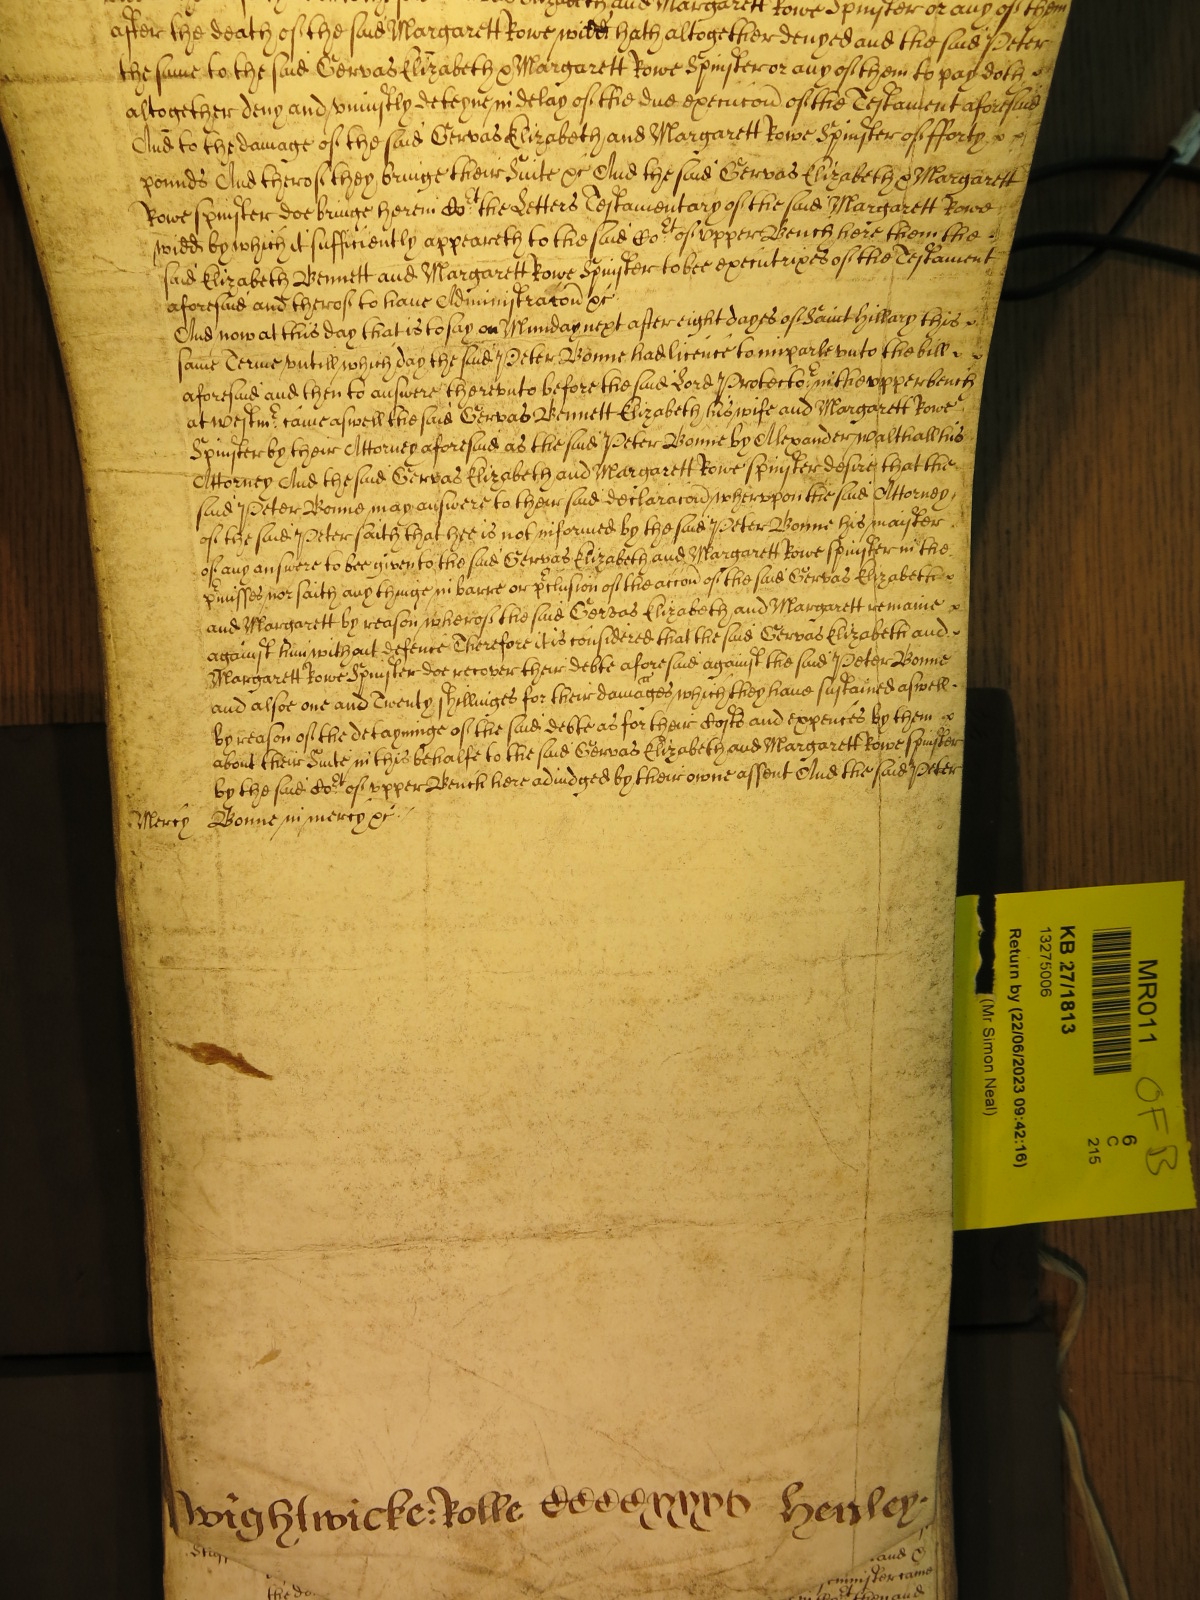 Elizabeth and Margarett Rowe Spinster or any of them
after the death of the said Margarett Rowe widd hath altogether denyed and the said Peter
the same to the said Gervas Elizabeth & Margarett Rowe Spinster or any of them to pay doth
altogether deny and uniustly deteyne in delay of the due execucon of the Testament aforesaid
And to the damage of the said Gervas Elizabeth and Margarett Rowe Spinster of fforty
pounds And therof they bringe their Suite &c And the said Gervas Elizabeth & Margarett
Rowe spinster doe bringe herein Cort the Letters Testamentary of the said Margarett Rowe
widd by which it sufficiently appeareth to the said Cort of upper Bench here them the
said Elizabeth Bennett and Margarett Rowe Spinster to bee executrixes of the Testament
aforesaid and therof to have Administracon &c
And now at this day that is to say on Munday next after eight dayes of Saint Hillary this
same Terme untill which day the said Peter Bonne had licence to imparle unto the bill
aforesaid and then to answere thereunto before the said Lord Protector in the upper bench
at Westmr came aswell the said Gervas Bennett Elizabeth his wife and Margarett Rowe
Spinster by their Attorney aforesaid as the said Peter Bonne by Alexander Walthall his
Attorney And the said Gervas Elizabeth and Margarett Rowe spinster desire that the
said Peter Bonne may answere to their said declaracon wherupon the said Attorney
of the said Peter saith that hee is not informed by the said Peter Bonne his maister
of any answere to bee given to the said Gervas Elizabeth and Margarett Rowe spinster in the
pmisses nor saith any thinge in barre or pclusion of the accon of the said Gervas Elizabeth
and Margarett by reason wherof the said Gervas Elizabeth and Margarett remaine
against him without defence Therefore it is considered that the said Gervas Elizabeth and
Margarett Rowe Spinster doe recover their debte aforesaid against the said Peter Bonne
and alsoe one and Twenty shillinges for their damages which they have sustained aswell
by reason of the detayninge of the said debte as for their Costs and expences by them
about their Suite in this behalfe to the said Gervas Elizabeth and Margarett Rowe spinster
by the said Cort of upper Bench here adiudged by their owne assent And the said Peter
Mercy Bonne in mercy &c
Wightwicke: Rolle CCCCXXXV Henley
and
the
came
MR011
OF B
6
C
215
KB 27/1813
13275006
Return by (22/06/2023 09:42:16)
(Mr Simon Neal)